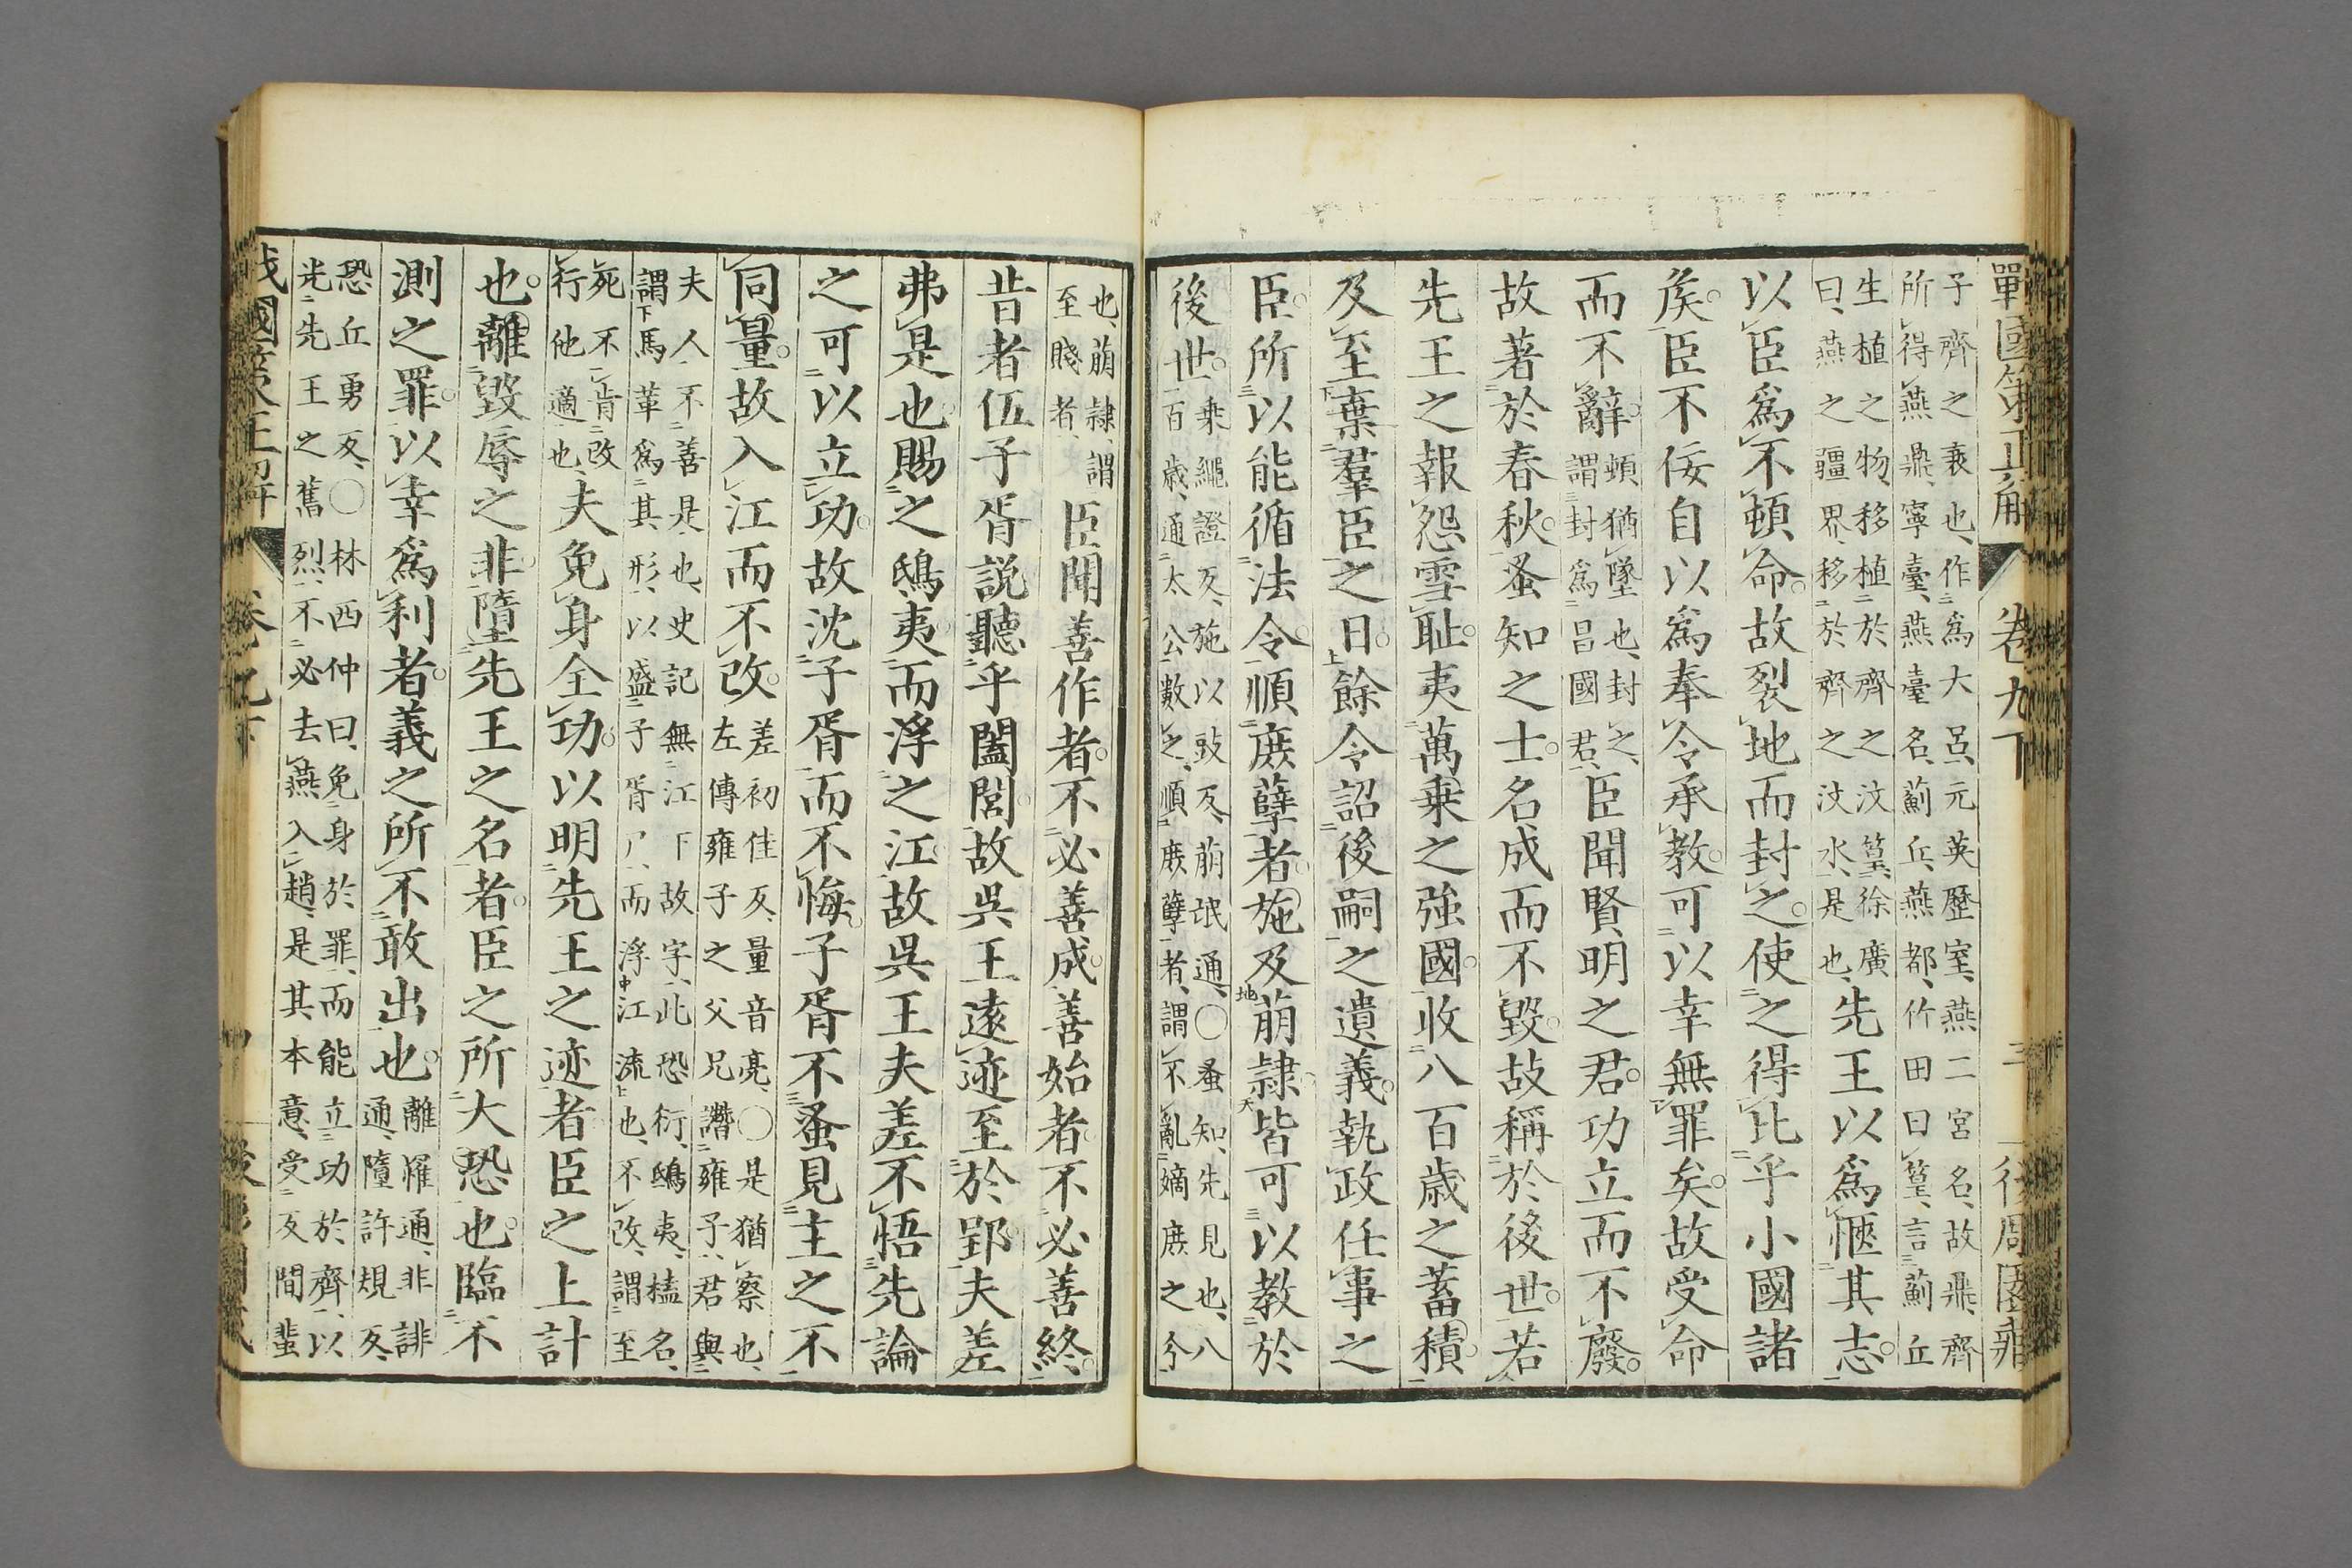 戰國策正解 卷九下 三
子齊之衰也、作爲大呂、元英歷室、燕二宮名、故鼎、齊
所得燕鼎、寧臺、燕臺名、薊丘、燕都、竹田曰篁、言薊丘
生植之物、移植於齊之汶篁、徐廣
曰、燕之疆界、移於齊之汶水、是也、
先王以爲愜其志。
以臣爲不頓命。故裂地而封之。使之得比乎小國諸
矦。臣不佞自以爲奉令承教。可以幸無罪矣。故受命
而不辭。
頓猶墜也、封之、
謂封爲昌國君、
臣聞賢明之君。功立而不廢。
故著於春秋。蚤知之士。名成而不毀。故稱於後世。若
先王之報怨雪耻。夷萬乘之強國。收八百歲之蓄積。
及至棄羣臣之日。餘令詔後嗣之遺義。執政任事之
臣。所以能循法令。順庶孽者。施及萠隷。皆可以教於
後世。
乘繩證反、施以豉反、萠氓通、〇蚤知、先見也、八
百歲、通太公數之、順庶孽者、謂不亂嫡庶之分
也、萠隷、謂
至賤者、
臣聞善作者。不必善成。善始者。不必善終。
昔者伍子胥説聽乎闔閭。故吳王遠迹至於郢。夫差
弗是也。賜之鴟夷。而浮之江。故吳王夫差不悟先論
之可以立功。故沈子胥而不悔。子胥不蚤見主之不
同量。故入江而不改。
差初佳反、量音亮、〇是猶察也、
左傳雍子之父兄譖雍子、君與
夫人不善是也、史記無江下故字、此恐衍、鴟夷、榼名、
謂馬革爲其形、以盛子胥尸、而浮江流也、不改、謂至
死不肯改
行他適也、
夫免身全功。以明先王之迹者。臣之上計
也。離毀辱之非。墮先王之名者。臣之所大恐也。臨不
測之罪。以幸爲利者。義之所不敢出也。
離罹通、非誹
通、隳許規反、
恐丘勇反、〇林西仲曰、免身於罪、而能立功於齊、以
光先王之舊烈、不必去燕入趙、是其本意、受反間蜚
戰國策正解 卷九下